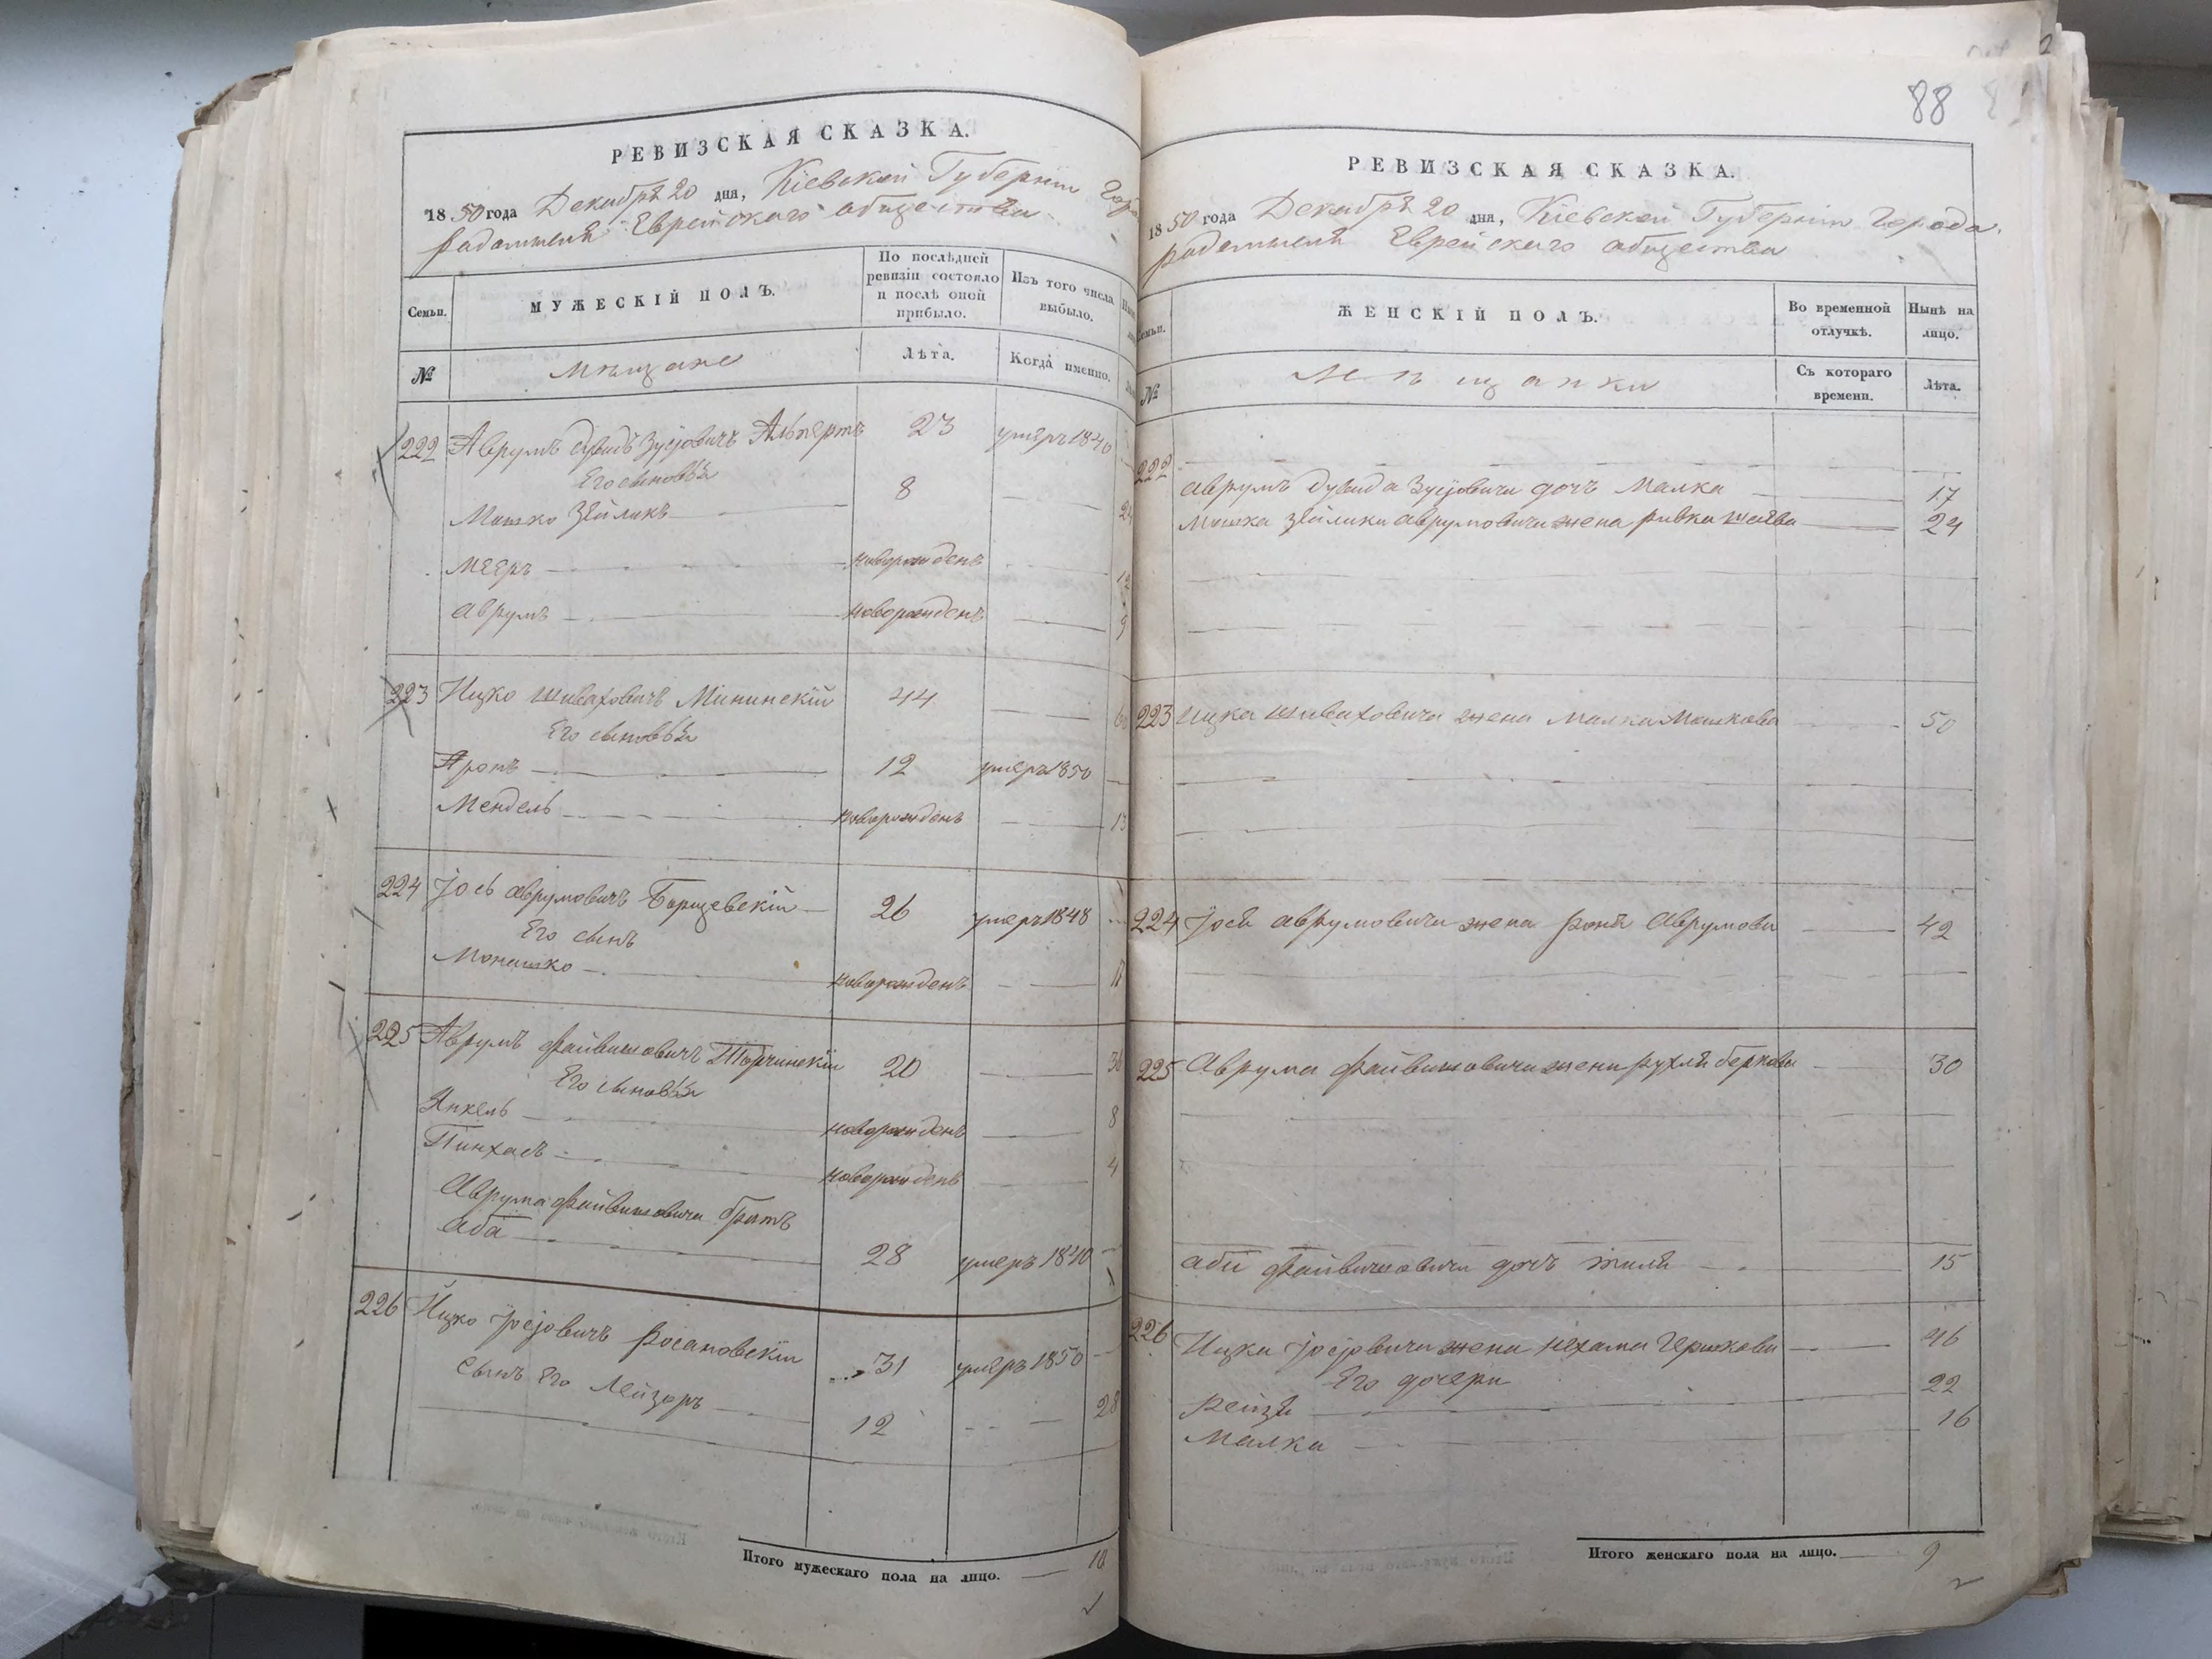 РЕВИЗСКАЯ СКАЗКА.
1850 года Декабря 20 дня, Кіевской Губерніи
Еврейскаго общества
Семьи.
МУЖЕСКІЙ ПОЛЪ.
По послѣдней ревизіи состояло и послѣ оной прибыло.
Изъ того числа выбыло.
№
Мѣщане
Лѣта.
Когда именно.
222 Аврумъ Дувидъ Зусіовичъ Альпертъ 23 умеръ 1840
Его сыновья
Мошко Зейликъ 8
Мееръ новорожденъ
Аврумъ новорожденъ 9
223 Ицко Шиваховичъ Мининскій 44
Его сыновья
Аронъ 12 умеръ 1850
Мендель новорожденъ 13
224 Іось Аврумовичъ Борщевскій 26 умеръ 1848
Его сынъ
Монашко новорожденъ
225 Аврумъ Файвишовичъ 20
Его сыновья
Янкель новорожденъ 8
Пинхасъ новорожденъ 4
Аврума Файвишовича братъ
Аба 28 умеръ 1840
226 Ицко Іосіовичъ Росановскій 31 умеръ 1850
Сынъ его Лейзоръ 12 28
Итого мужескаго пола на лицо. 10
88
РЕВИЗСКАЯ СКАЗКА.
1850 года Декабря 20 дня, Кіевской Губерніи Города
Еврейскаго общества
Семьи.
ЖЕНСКІЙ ПОЛЪ.
Во временной отлучкѣ.
Нынѣ на лицо.
№
Мѣщанки
Съ котораго времени.
Лѣта.
222
Аврумъ Дувида Зусіовича дочь Малка 17
Мошка Зейлика Аврумовича жена Ривка 24
223 Ицка Шиваховича жена Малка Мошкова 50
224 Іося Аврумовича жена Аврумова 42
225 Аврума Файвишовича жена Рухля Беркова 30
Абы Файвишовича дочь 15
226 Ицка Іосіовича жена Нехама Гершкова 46
Его дочери
Рейзя 22
Малка 16
Итого женскаго пола на лицо. 9